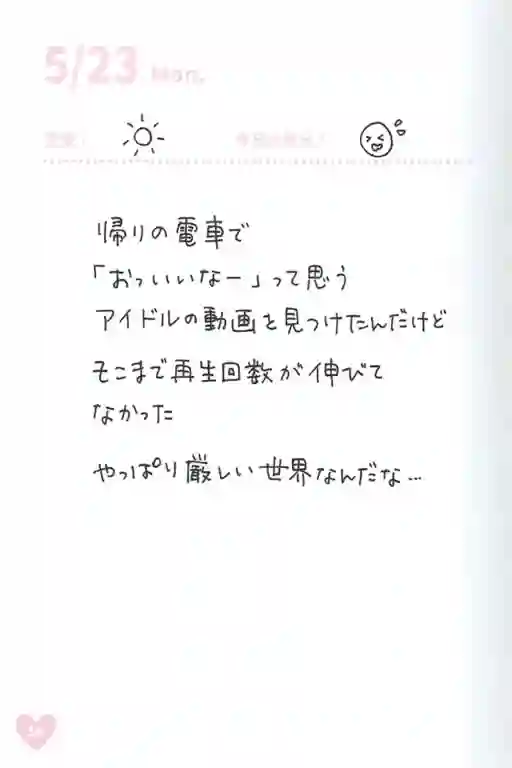 5/23 Mon.
帰りの電車で
「おっいいなー」って思う
アイドルの動画を見つけたんだけど
そこまで再生回数が伸びて
なかった
やっぱり厳しい世界なんだな…